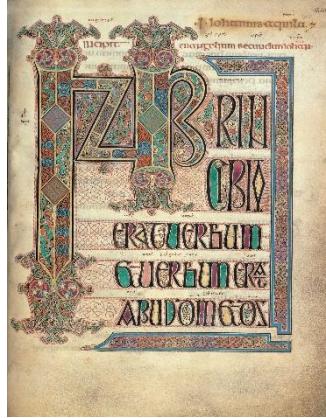 Iohannis aquila
Incipit euangelium secundum iohan
INPRIN
CIPIO
ERAT UERBUM
ET UERBUM ERAT
APUD DM ET DS